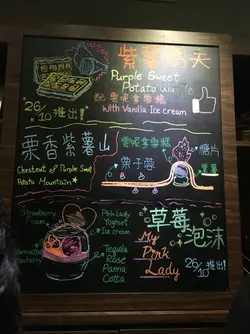 紫薯高天
Purple Sweet
Potato Waffle
配雲呢拿雪糕
with Vanilla Ice cream
26/10推出!
栗香紫薯山
Chestnut & Purple Sweet
Potato Mountain
雲呢拿雪糕
栗子蓉
糖片
Strawberry
Foam
Pink Lady
Yoghurt
Ice cream
Strawberry
Tequila
Rose
Panna
Cotta
草莓
泡沫
My
Pink
Lady
26/10推出!